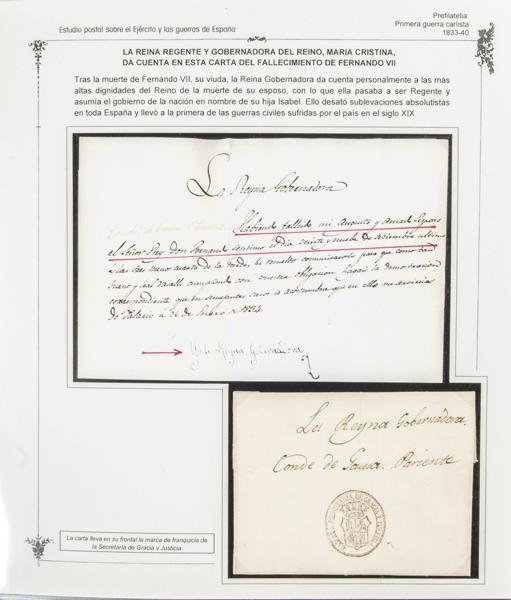 Estudio postal sobre el Ejército y las guerras de España
Prefilatelia:
Primera guerra carlista
1833-40
LA REINA REGENTE Y GOBERNADORA DEL REINO, MARIA CRISTINA,
DA CUENTA EN ESTA CARTA DEL FALLECIMIENTO DE FERNANDO VII
Tras la muerte de Fernando VII, su viuda, la Reina Gobernadora da cuenta personalmente a las más
altas dignidades del Reino de la muerte de su esposo, con lo que ella pasaba a ser Regente y
asumía el gobierno de la nación en nombre de su hija Isabel. Ello desató sublevaciones absolutistas
en toda España y llevó a la primera de las guerras civiles sufridas por el país en el siglo XIX
La Reyna Gobernadora
Habiendo fallido mi Augusto y Amado Esposo
el Señor Rey Don Fernando septimo el dia veinte y nueve de setiembre ultimo
á las tres menos cuarto de la tarde, he resuelto comunicaroslo para que como
y leal vasallo cumpliendo con vuestra obligacion hagais la demostracion
correspondiente que en semejantes casos se acostumbra que en ello me serviréis
de Palacio á 22 de Enero de 1834.
Yo la Reyna Gobernadora
La Reyna Gobernadora.
Conde de Pariente
SECRETARIA DE GRACIA Y JUSTICIA
La carta lleva en su frontal la marca de franquicia de
la Secretaría de Gracia y Justicia